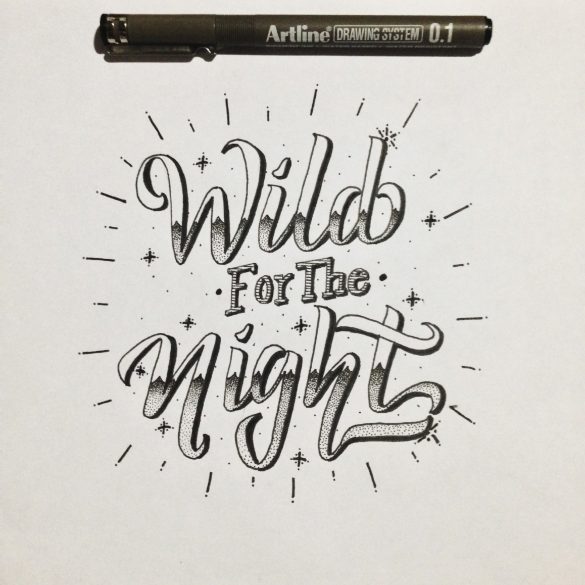 Artline® DRAWING SYSTEM 0.1
Wild
For The
Night